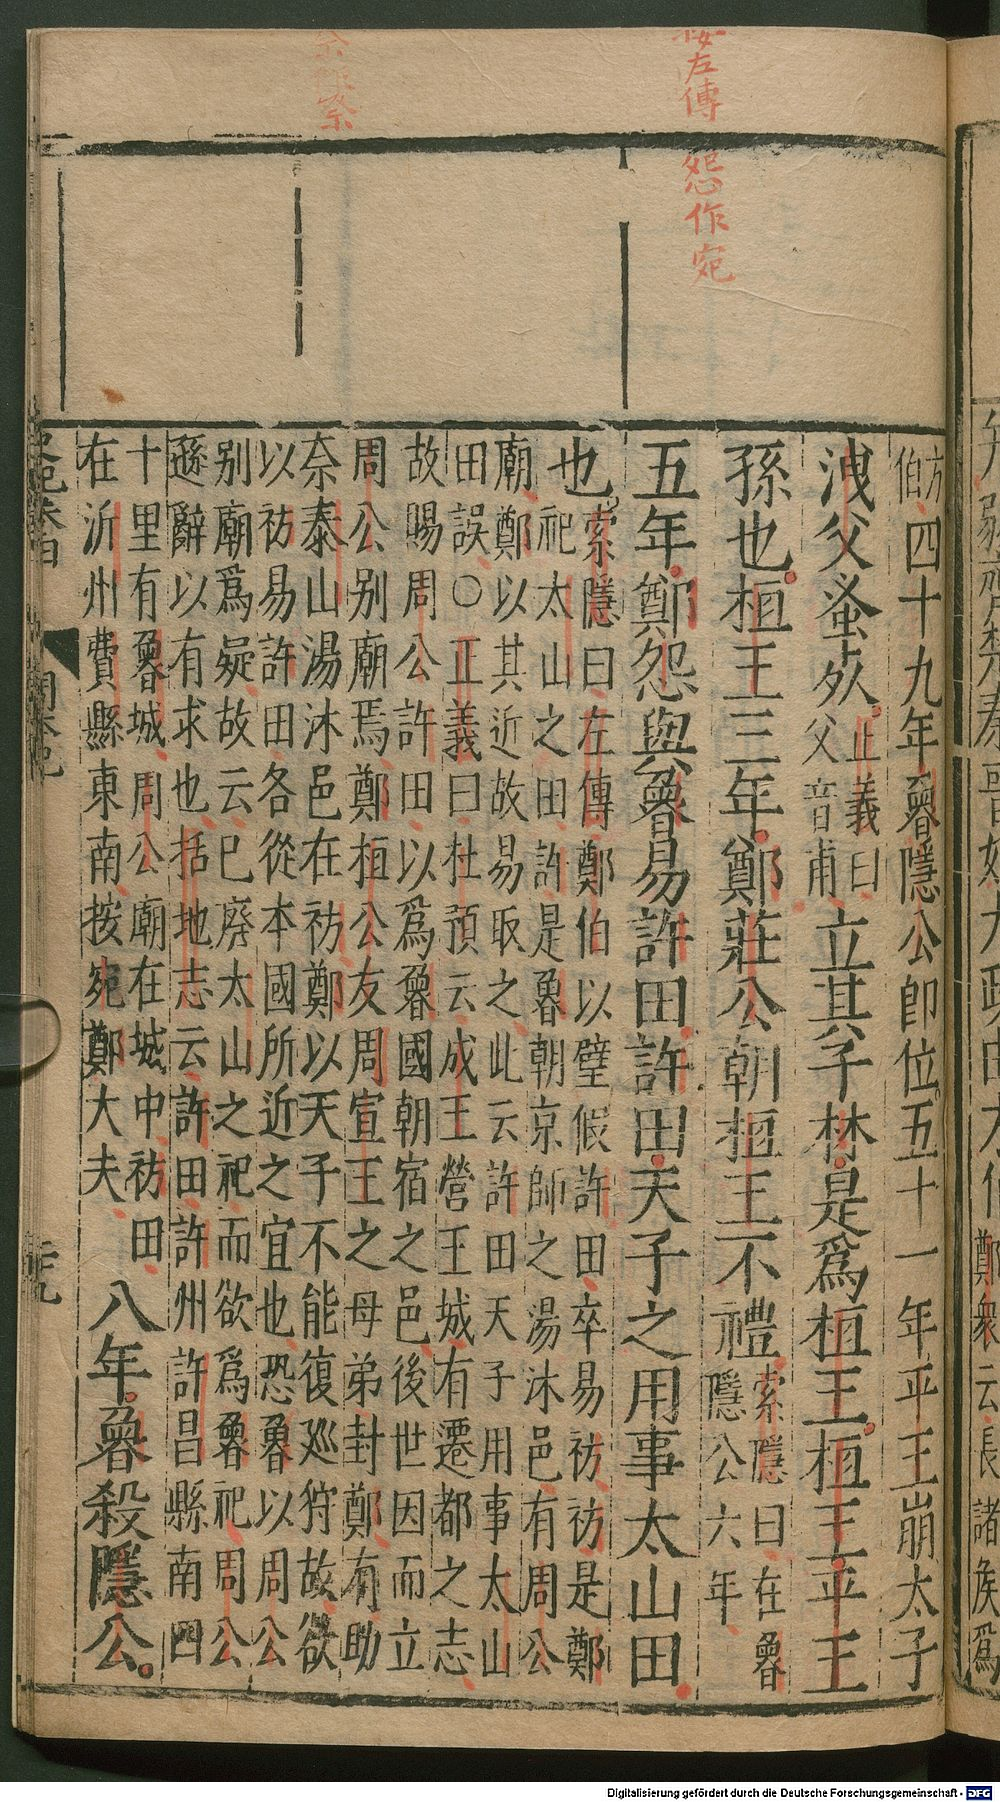 按左傳 怨作宛
方
伯四十九年魯隱公卽位五十一年平王崩太子
洩父蚤死
正義曰
父音甫
立其子林是爲桓王桓王平王
孫也桓王三年鄭莊公朝桓王不禮
索隱曰在魯
隱公六年
五年鄭怨與魯易許田許田天子之用事太山田
也
索隱曰左傳鄭伯以璧假許田卒易祊祊是鄭
祀太山之田許是魯朝京師之湯沐邑有周公
廟鄭以其近故易取之此云許田天子用事太山
田誤○正義曰杜預云成王營王城有遷都之志
故賜周公許田以爲魯國朝宿之邑後世因而立
周公别廟焉鄭桓公友周宣王之母弟封鄭有助
奈泰山湯沐邑在祊鄭以天子不能復廵狩故欲
以祊易許田各從本國所近之宜也恐魯以周公
别廟爲疑故云已廢太山之祀而欲爲魯祀周公
遜辭以有求也括地志云許田許州許昌縣南四
十里有魯城周公廟在城中祊田
在沂州費縣東南按宛鄭大夫
八年魯殺隱公
周本紀
鄭衆云長諸侯爲
Digitalisierung gefördert durch die Deutsche Forschungsgemeinschaft - DFG